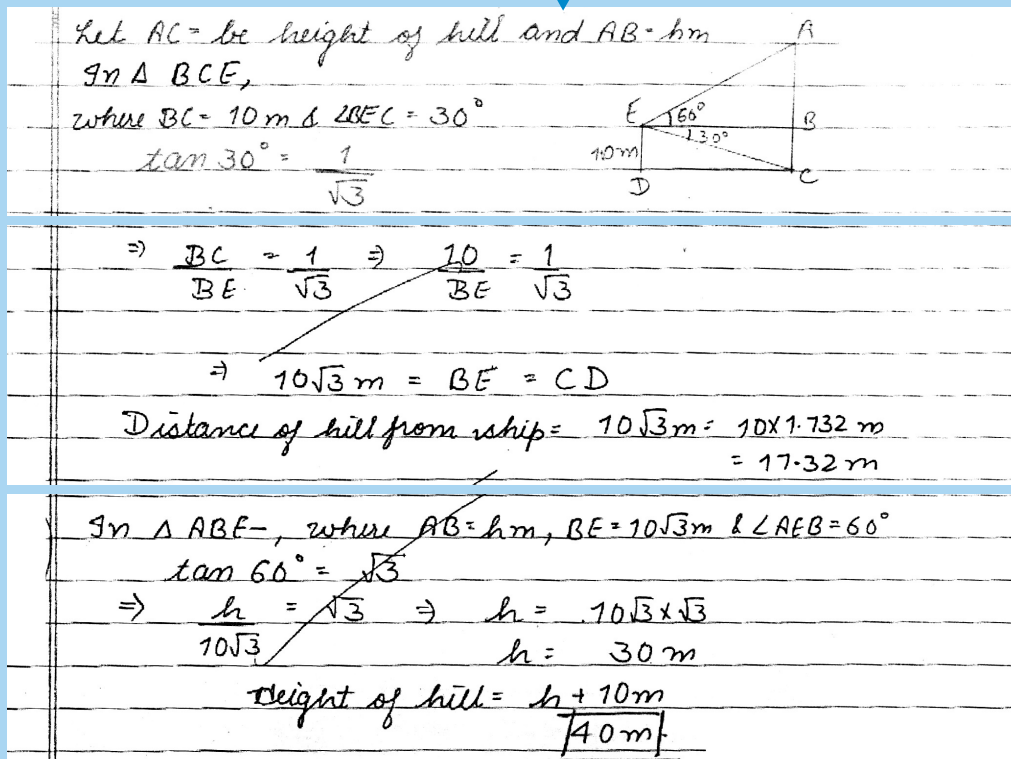 Let AC = be height of hill and AB = hm
In Δ BCE,
where BC = 10 m & ∠BEC = 30°
tan 30° = 1/√3
A
E 60° B
30°
10m
D C
⇒ BC/BE = 1/√3 ⇒ 10/BE = 1/√3
⇒ 10√3 m = BE = CD
Distance of hill from ship = 10√3 m = 10×1.732 m
= 17.32 m
In Δ ABE-, where AB = hm, BE = 10√3m & ∠AEB = 60°
tan 60° = √3
⇒ h/10√3 = √3 ⇒ h = 10√3 × √3
h = 30 m
Height of hill = h + 10m
40 m